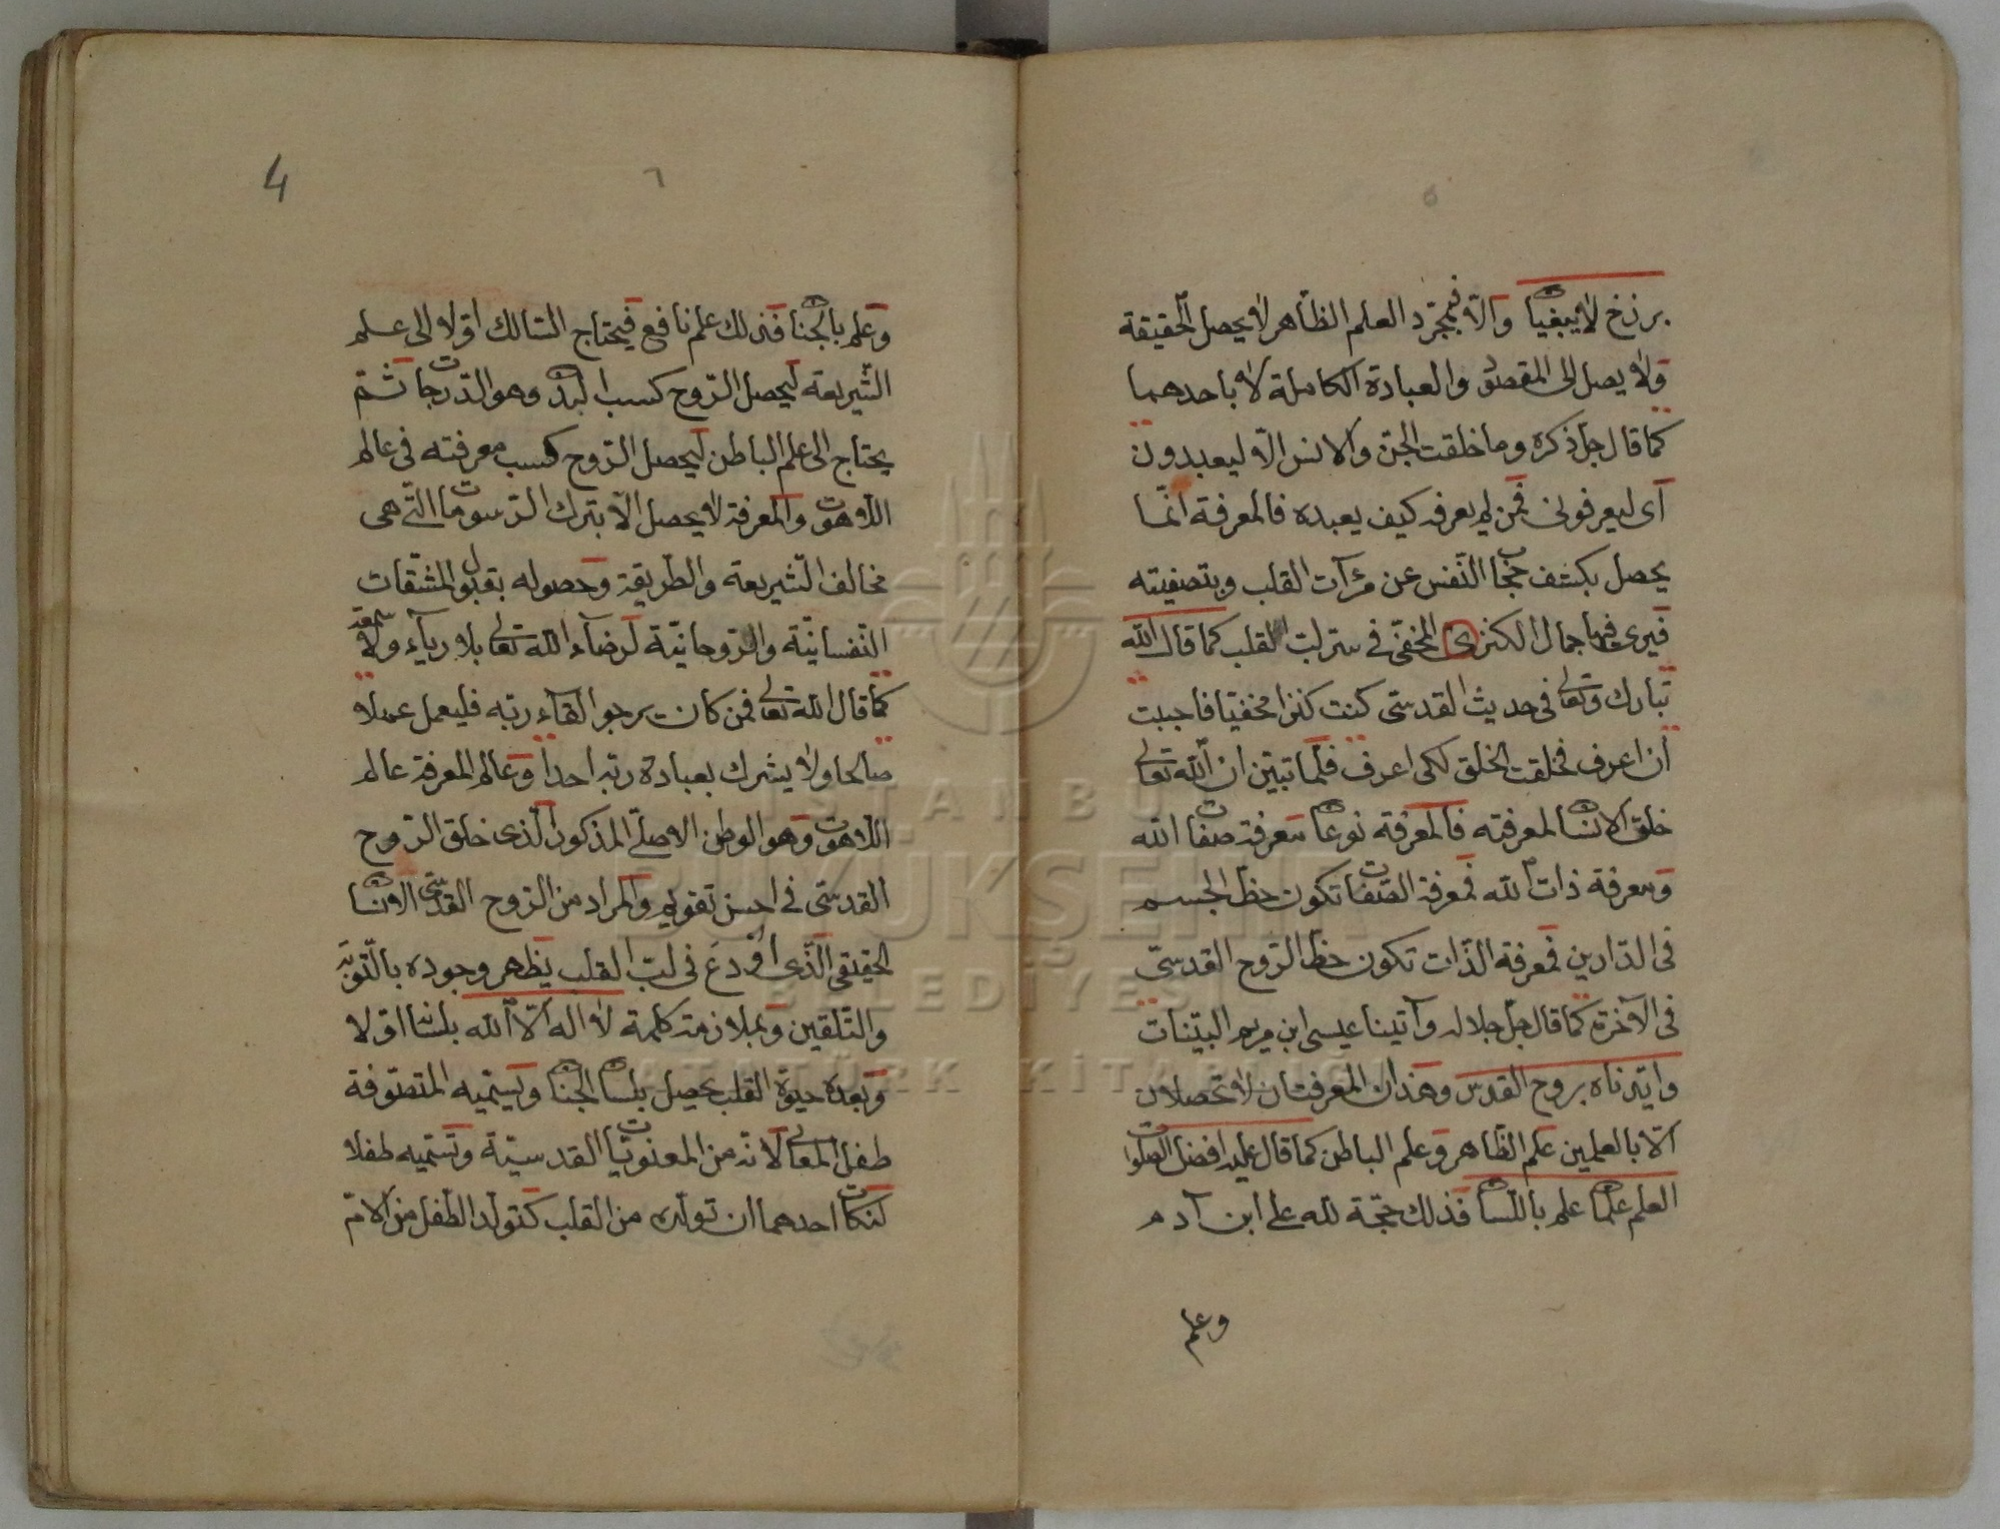 ٥
برزخ لا يبغيان والّا فبمجرّد العلم الظّاهر لا يحصل الحقيقة
ولا يصل الى المقصود والعبادة الكاملة لا باحدهما
كما قال جلّ ذكره وما خلقت الجنّ والانس الّا ليعبدون
اى ليعرفونى فمن لم يعرفه كيف يعبده فالمعرفة انّما
يحصل بكشف حجاب النّفس عن مرآت القلب وبتصفيته
فيرى فيها جمال الكنزى المخفىّ فى سرّ لبّ القلب كما قال الله
تبارك وتعالى فى حديث القدسىّ كنت كنزا مخفيّا فاحببت
ان اعرف فخلقت الخلق لكى اعرف فلمّا تبيّن انّ الله تعالى
خلق الانسان لمعرفته فالمعرفة نوعان معرفة صفات الله
ومعرفة ذات الله فمعرفة الصّفات تكون حظّ الجسم
فى الدّارين فمعرفة الذّات تكون حظّ الرّوح القدسىّ
فى الآخرة كما قال جلّ جلاله وآتينا عيسى ابن مريم البيّنات
وايّدناه بروح القدس وهذان المعرفتان لا تحصلان
الّا بالعلمين علم الظّاهر وعلم الباطن كما قال عليه افضل الصّلوات
العلم علمان علم باللّسان فذلك حجّة لله على ابن آدم
وعلم
4
٦
وعلم بالجنان فذلك علم نافع فيحتاج السّالك اوّلا الى علم
الشّريعة ليحصل الرّوح كسب البدن وهو الدّرجات ثمّ
يحتاج الى علم الباطن ليحصل الرّوح كسب معرفته فى عالم
اللّاهوت والمعرفة لا يحصل الّا بترك الرّسومات الّتى هى
مخالف الشّريعة والطريقة وحصوله بقبول المشقّات
النّفسانيّة والرّوحانيّة لرضاء الله تعالى بلا رياء ولا سمعة
كما قال الله تعالى فمن كان يرجوا لقاء ربّه فليعمل عملا
صالحا ولا يشرك بعبادة ربّه احدا وعالم المعرفة عالم
اللّاهوت وهو الوطن الاصلىّ المذكور الّذى خلق الرّوح
القدسىّ فى احسن تقويم والمراد من الرّوح القدسىّ الانسان
الحقيقى الّذى اودع فى لبّ القلب يظهر وجوده بالتّوبة
والتّلقين وبملازمة كلمة لا اله الّا الله بلسانه اوّلا
وبعده حيوة القلب يحصل بلسان الجنان ويسمّيه المتصوّفة
طفل المعانى لانّه من المعنويّات القدسيّة وتسميه طفلا
لنكات احدهما ان تولّده من القلب كتولّد الطّفل من الامّ